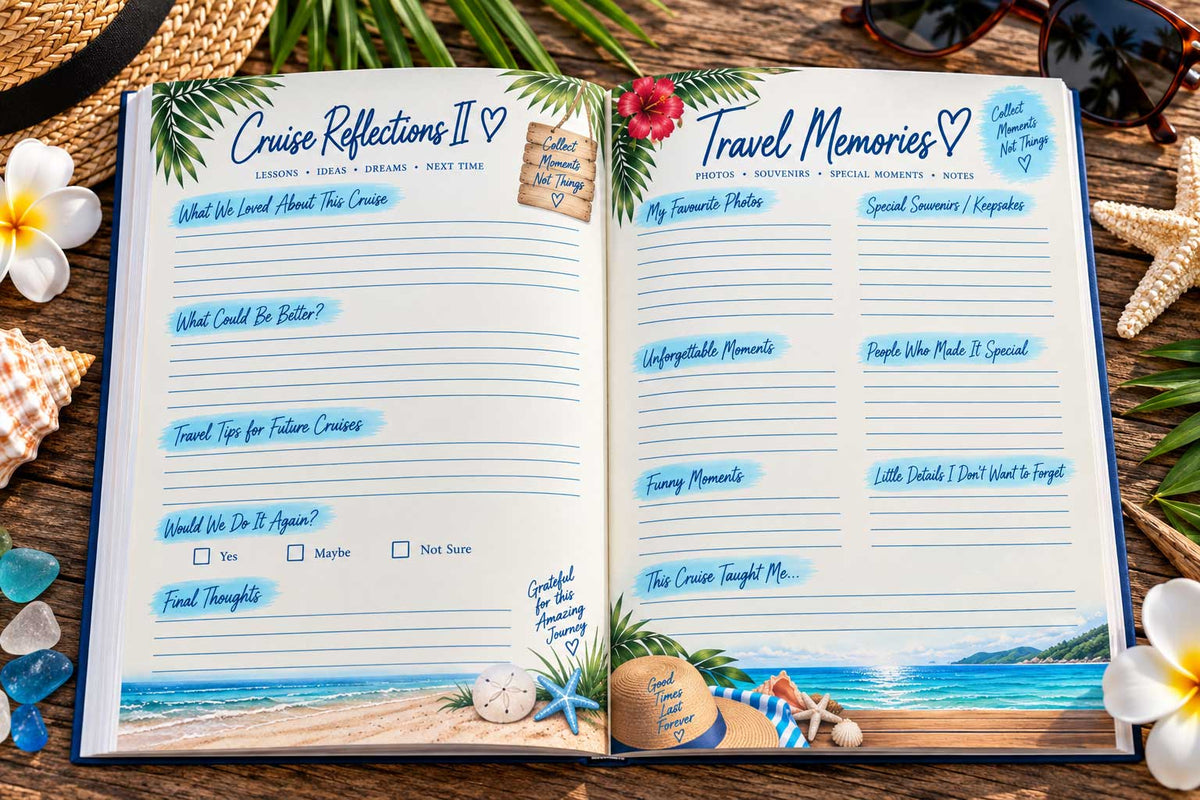 Cruise Reflections II ♡
LESSONS • IDEAS • DREAMS • NEXT TIME
Collect
Moments
Not Things
♡
What We Loved About This Cruise
What Could Be Better?
Travel Tips for Future Cruises
Would We Do It Again?
Yes
Maybe
Not Sure
Final Thoughts
Grateful
for this
Amazing
Journey
♡
Travel Memories ♡
PHOTOS • SOUVENIRS • SPECIAL MOMENTS • NOTES
Collect
Moments
Not Things
♡
My Favourite Photos
Special Souvenirs / Keepsakes
Unforgettable Moments
People Who Made It Special
Funny Moments
Little Details I Don't Want to Forget
This Cruise Taught Me...
Good
Times
Last
Forever
♡